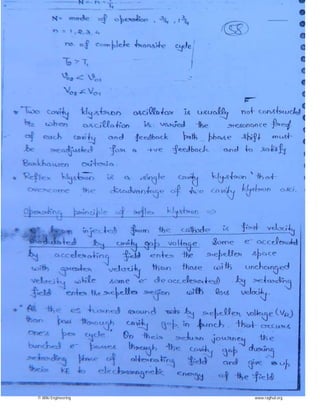 N = mode of operation, 3/4, 1 3/4
58
n = 1, 2, 3, 4
no. of complete transite cycle
T0 > T1
* Two cavity klystron oscillator is usually not constructed
when oscillation is varied the resonance freq
of each cavity and feedback path phase shift must
be readjusted for a +ve feedback and to satisfy
Barkhausen criteria
* Reflex klystron is a single cavity klystron that
overcome the disadvantage of two cavity klystron osci.
Operating principle of reflex klystron ⇒
injected from the cathode is first velocity
modulated by cavity gap voltage some e⁻ accelerated
by accelerating field enter the repeller space
with greater velocity than those with unchanged
velocity while some e⁻ deaccelerated by retarding
field enter the repeller region with less velocity.
* All the e⁻s turned around by repeller voltage (VR)
then pass through cavity gap in bunch that occurs
ones per cycle. On their return journey the
bunched e⁻ passes through the cavity gap during
retarding phase of alternating field and give up
their KE to electromagnetic energy of the field
© Wiki Engineering
www.raghul.org